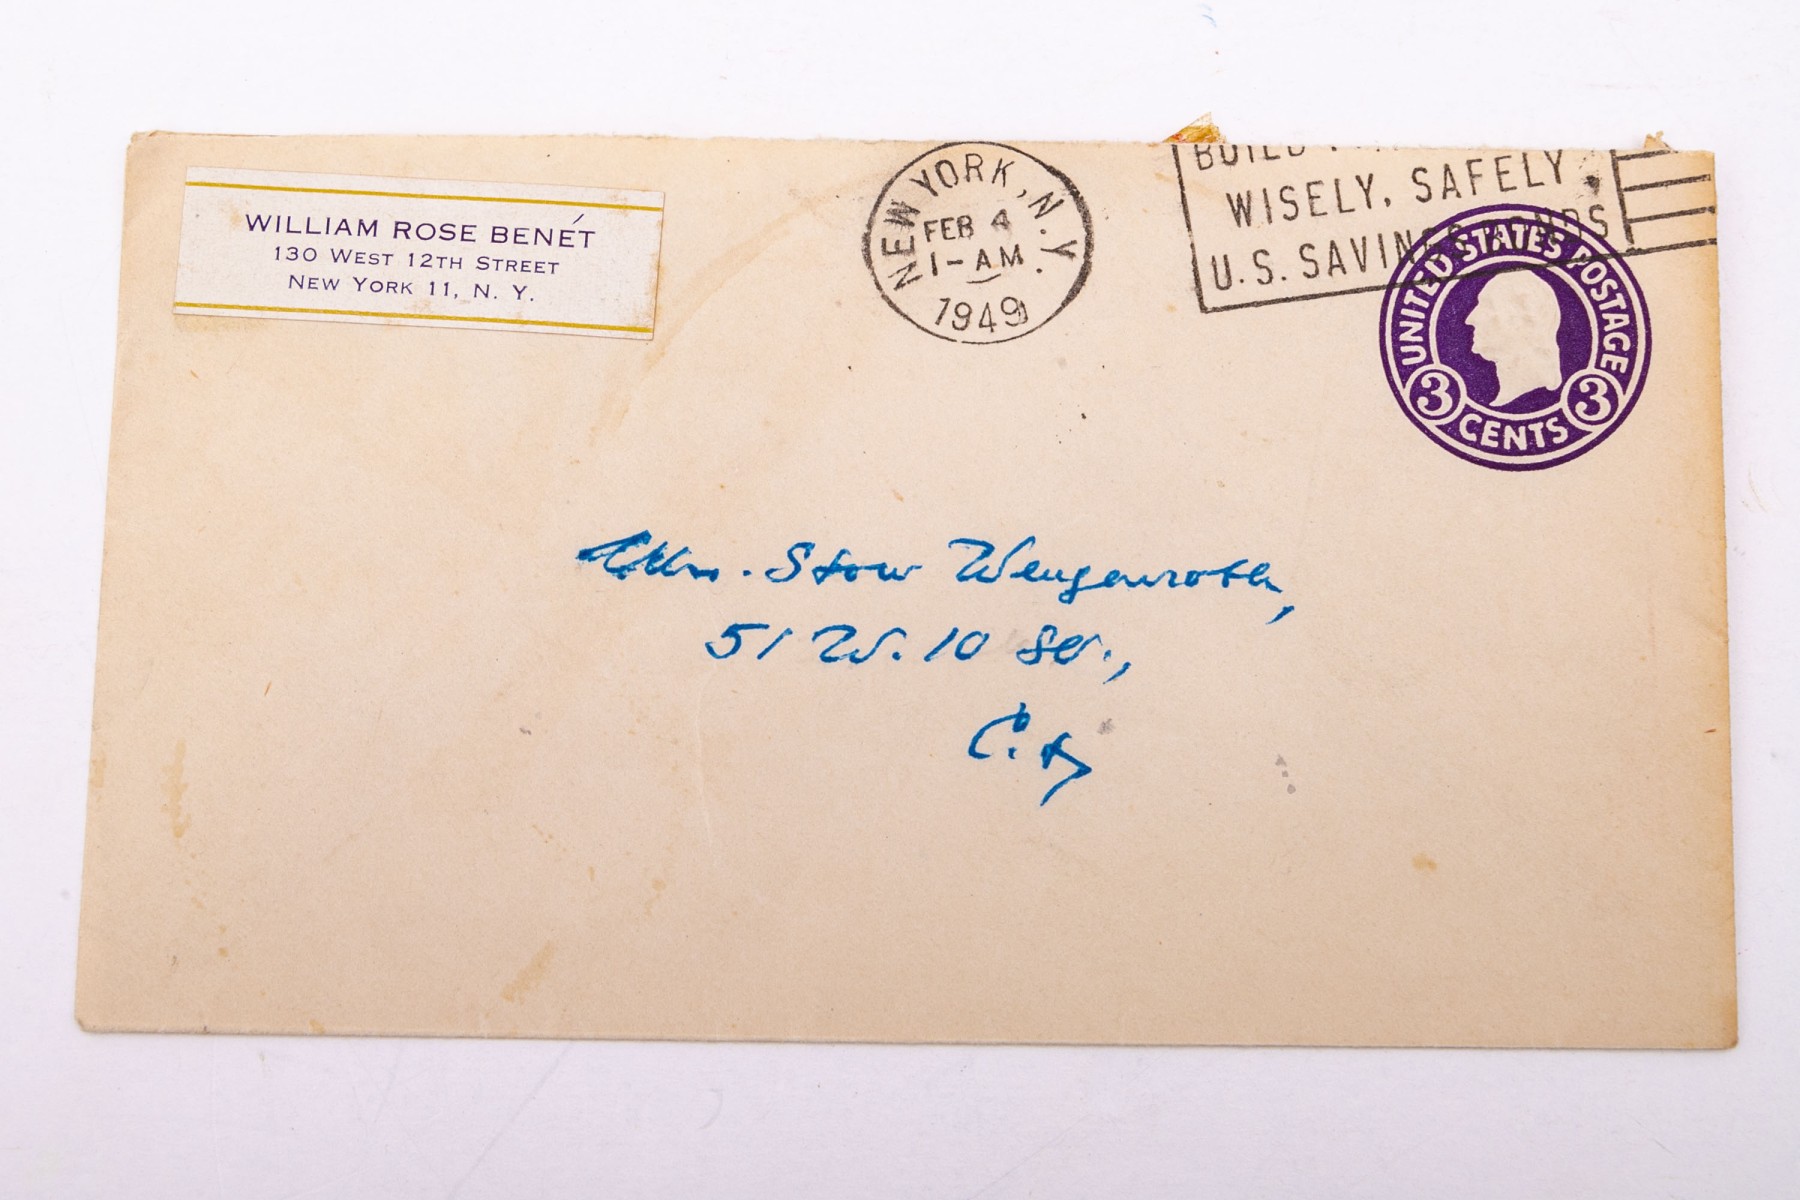 WILLIAM ROSE BENÉT
130 WEST 12TH STREET
NEW YORK 11, N. Y.
NEW YORK, N.Y.
FEB 4
1-AM
1949
BUILD
WISELY, SAFELY
U.S. SAVINGS BONDS
UNITED STATES POSTAGE
3 CENTS 3
Mrs. Stow Wengenroth,
51 W. 10 St.,
City